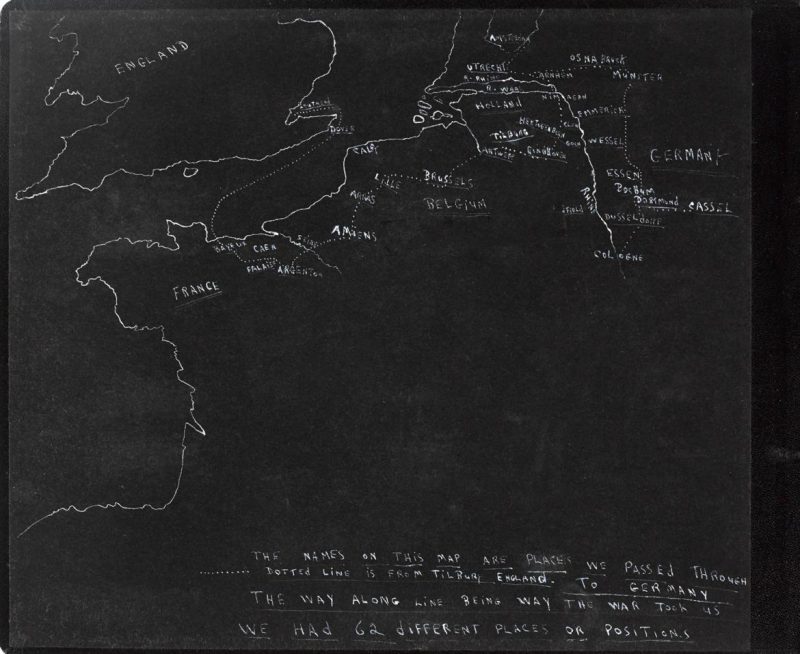 ENGLAND
AMSTERDAM
UTRECHT
OSNABROCK
R. RHINE
ARNHEM
MÜNSTER
R. WAAL
HOLLAND
EMMERICK
TILBURG
DOVER
WESSEL
CALAIS
ANTWERP
EINDHOVEN
GERMANY
LILLE
BRUSSELS
ESSEN
BOCHUM
ARRAS
BELGIUM
DORTMUND CASSEL
DUSSELDORF
AMIENS
BAYEUX CAEN
FALAISE ARGENTON
COLOGNE
FRANCE
THE NAMES ON THIS MAP ARE PLACES WE PASSED THROUGH
DOTTED LINE IS FROM TILBURY ENGLAND. TO GERMANY
THE WAY ALONG LINE BEING WAY THE WAR TOOK US
WE HAD 62 DIFFERENT PLACES OR POSITIONS